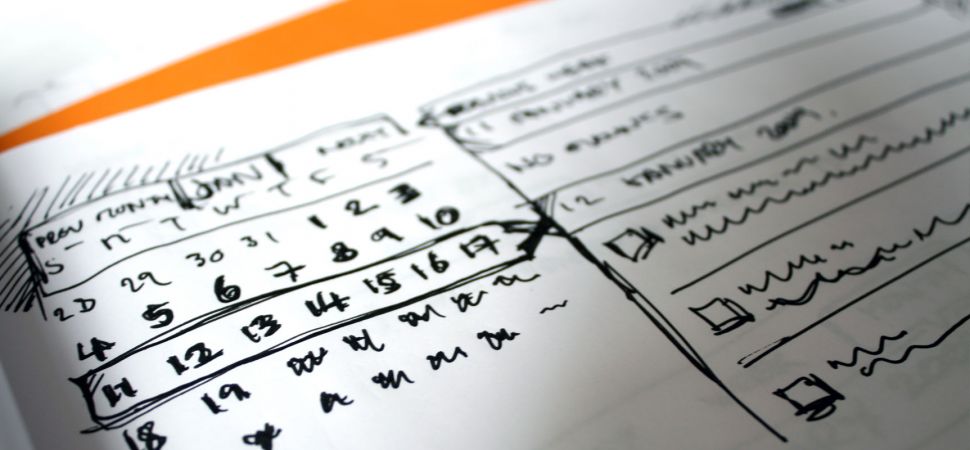 PREV MONTH JAN NEXT
S M T W T F S
28 29 30 31 1 2 3
4 5 6 7 8 9 10
11 12 13 14 15 16 17
18 19
11 JANUARY
NO EVENTS
12 JANUARY 2009.